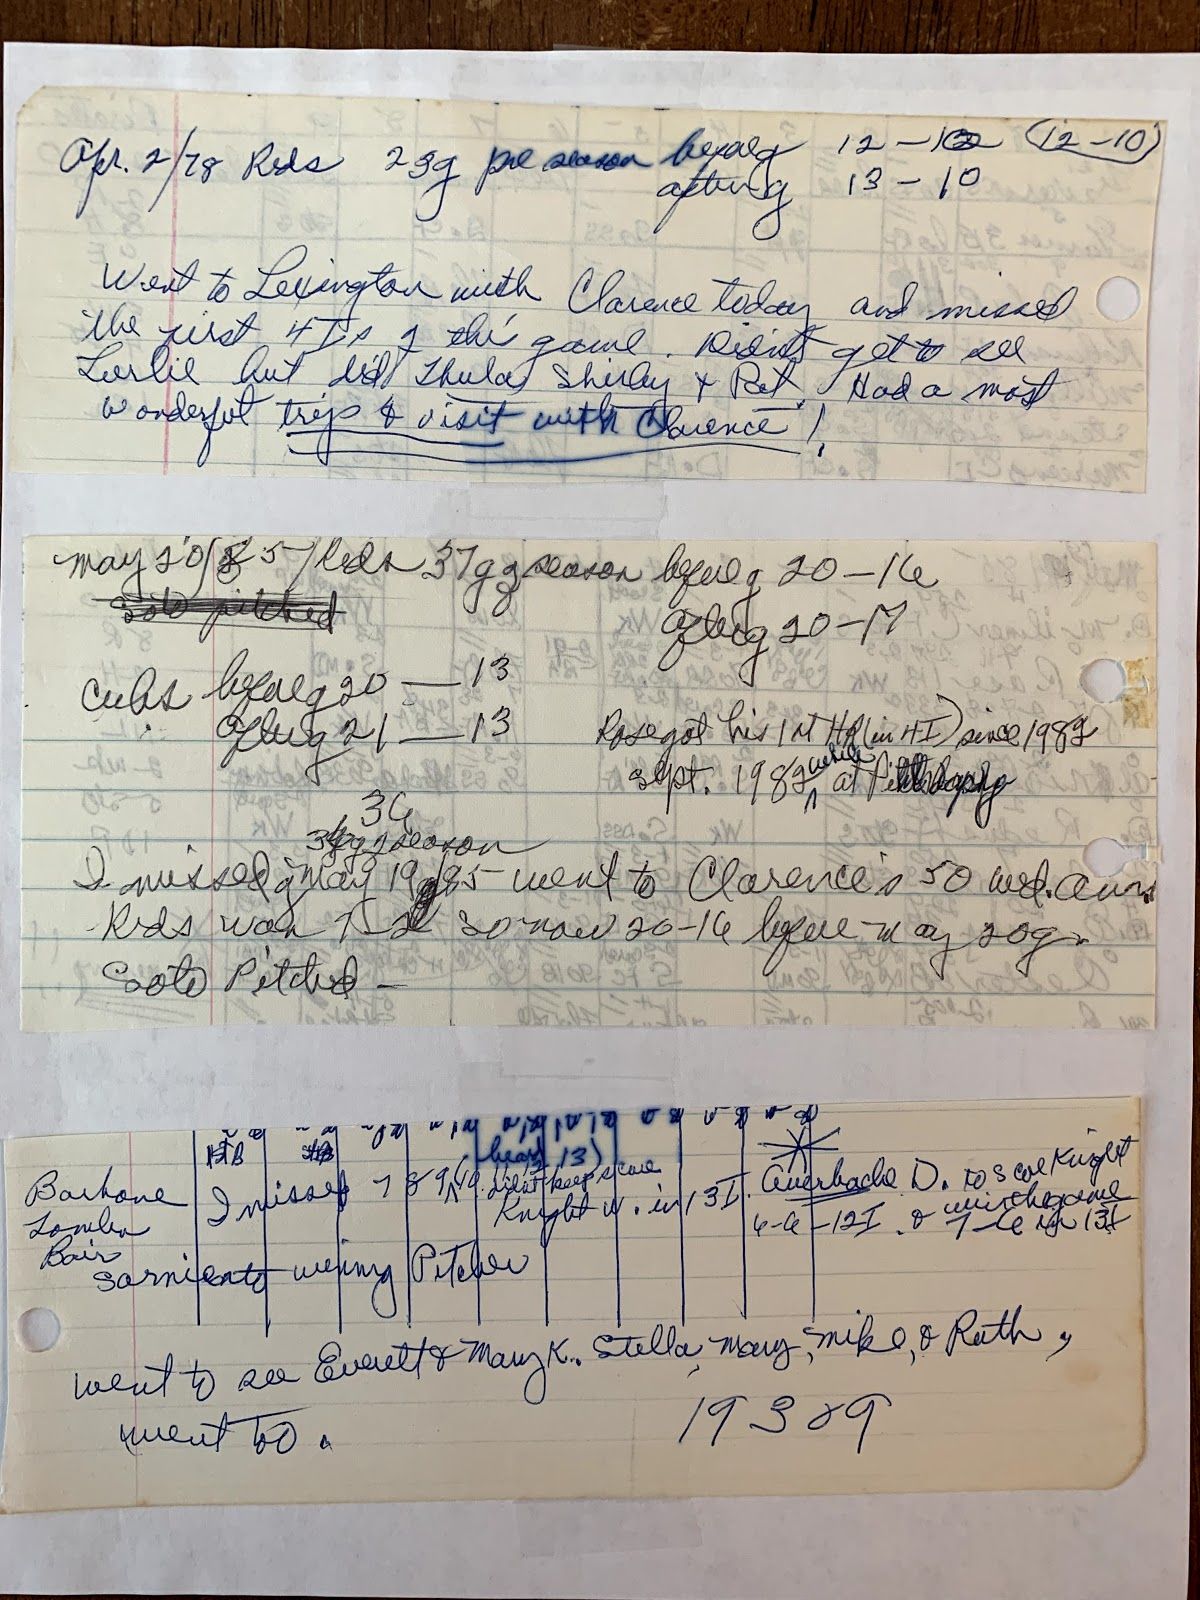 Apr. 2/78 Reds 23g pre season before g 12-10 (12-10)
after g 13-10
Went to Lexington with Clarence today and missed
the first 4 Is of the game. Didn't get to see
Leslie but did Thula, Shirley & Pat. Had a most
wonderful trip & visit with Clarence!
May 20/85/Reds 37g g season before g 20-16
Soto pitched
after g 20-17
Cubs before g 20-13
after g 21-13
Rose got his 1st HR (in 4I) since 1982
Sept. 1982 while at
36
g season
I missed g May 19/85 went to Clarence's 50 wed. ann
Reds won 7-2 so now 20-16 before May 20g
Soto Pitched -
HB
(heard 13)
Barbone I missed 7 8 9 10 didn't keep score
Knight w. in 13I. Auerbach D. to score Knight
Tomlin 6-6-12I. & win the game
7-6 in 13I
Bair
Sarmiento wining Pitcher
went to see Everett & Mary K. Stella, Mary, Mike, & Ruth,
went too.
19 3 & 9